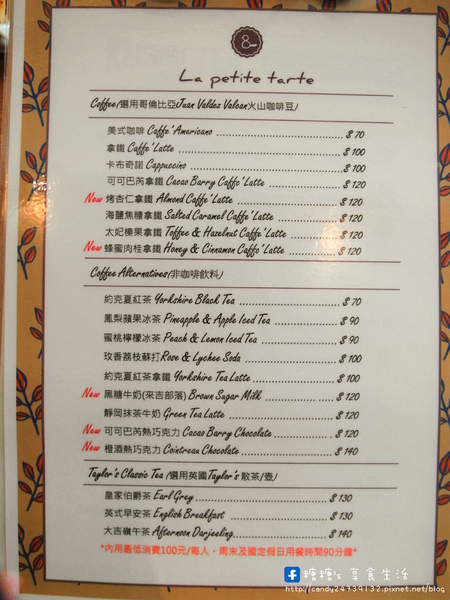 &
La petite tarte
Coffee/選用哥倫比亞Juan Valdez Volcan火山咖啡豆/
美式咖啡 Caffe' Americano $ 70
拿鐵 Caffe' Latte $ 100
卡布奇諾 Cappuccino $ 100
可可巴芮拿鐵 Cacao Barry Caffe' Latte $ 120
New 烤杏仁拿鐵 Almond Caffe' Latte $ 120
海鹽焦糖拿鐵 Salted Caramel Caffe' Latte $ 120
太妃榛果拿鐵 Toffee & Hazelnut Caffe' Latte $ 120
New 蜂蜜肉桂拿鐵 Honey & Cinnamon Caffe' Latte $ 120
Coffee Alternatives/非咖啡飲料/
約克夏紅茶 Yorkshire Black Tea $ 70
鳳梨蘋果冰茶 Pineapple & Apple Iced Tea $ 90
蜜桃檸檬冰茶 Peach & Lemon Iced Tea $ 90
玫香荔枝蘇打 Rose & Lychee Soda $ 100
約克夏紅茶拿鐵 Yorkshire Tea Latte $ 100
New 黑糖牛奶(來吉部落) Brown Sugar Milk $ 120
靜岡抹茶牛奶 Green Tea Latte $ 120
New 可可巴芮熱巧克力 Cacao Barry Chocolate $ 120
New 橙酒熱巧克力 Cointreau Chocolate $ 140
Taylor's Classic Tea /選用英國Taylor's 散茶/壺/
皇家伯爵茶 Earl Grey $ 130
英式早安茶 English Breakfast $ 130
大吉嶺午茶 Afternoon Darjeeling $ 140
*內用最低消費100元/每人，周末及國定假日用餐時間90分鐘*
糖糖's 享食生活
http://candy24739132.pixnet.net/blog